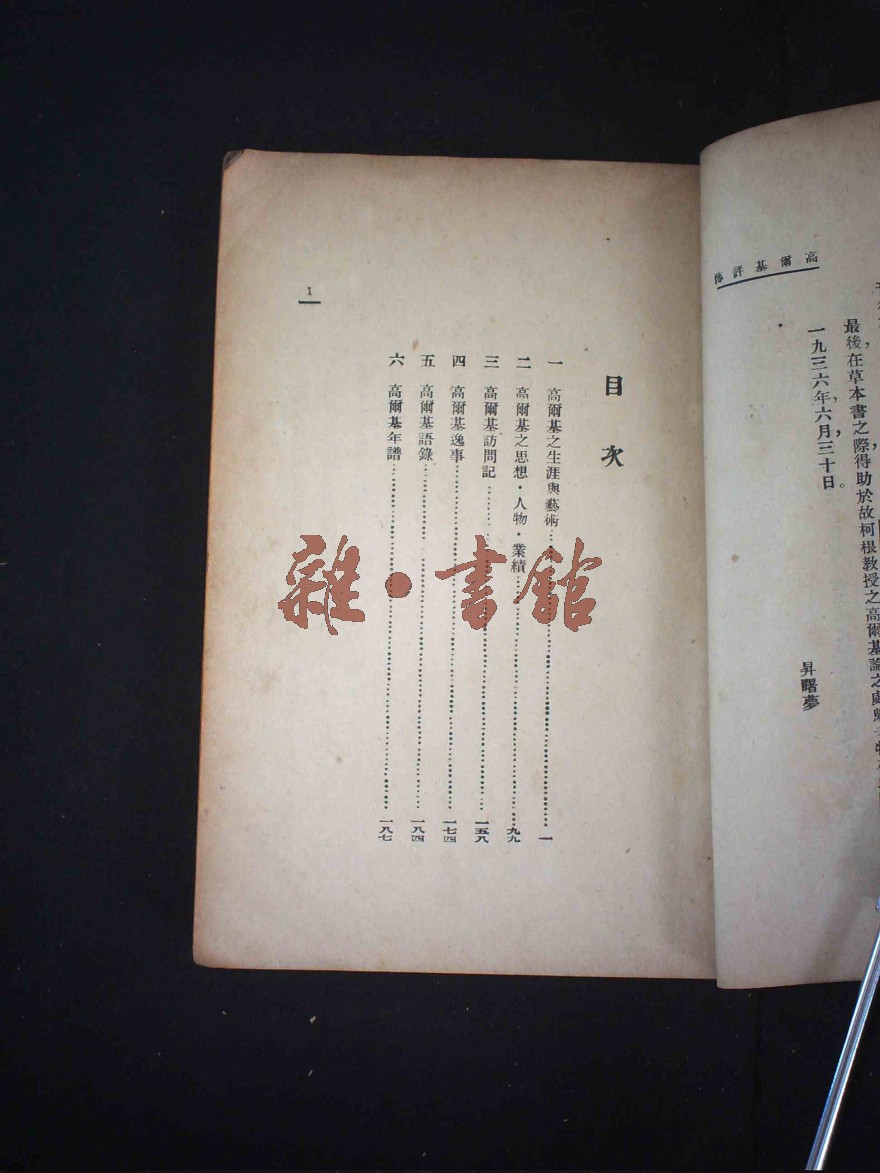 高爾基評傳
最後在草本書之際，得助於故柯根教授之高爾基論之處
一九三六年，六月，三十日。
昇曙夢
目次
一 高爾基之生涯與藝術 一
二 高爾基之思想·人物·業績 九九
三 高爾基訪問記 一五八
四 高爾基逸事 一七四
五 高爾基語錄 一八四
六 高爾基年譜 一八七
1
雜·書館